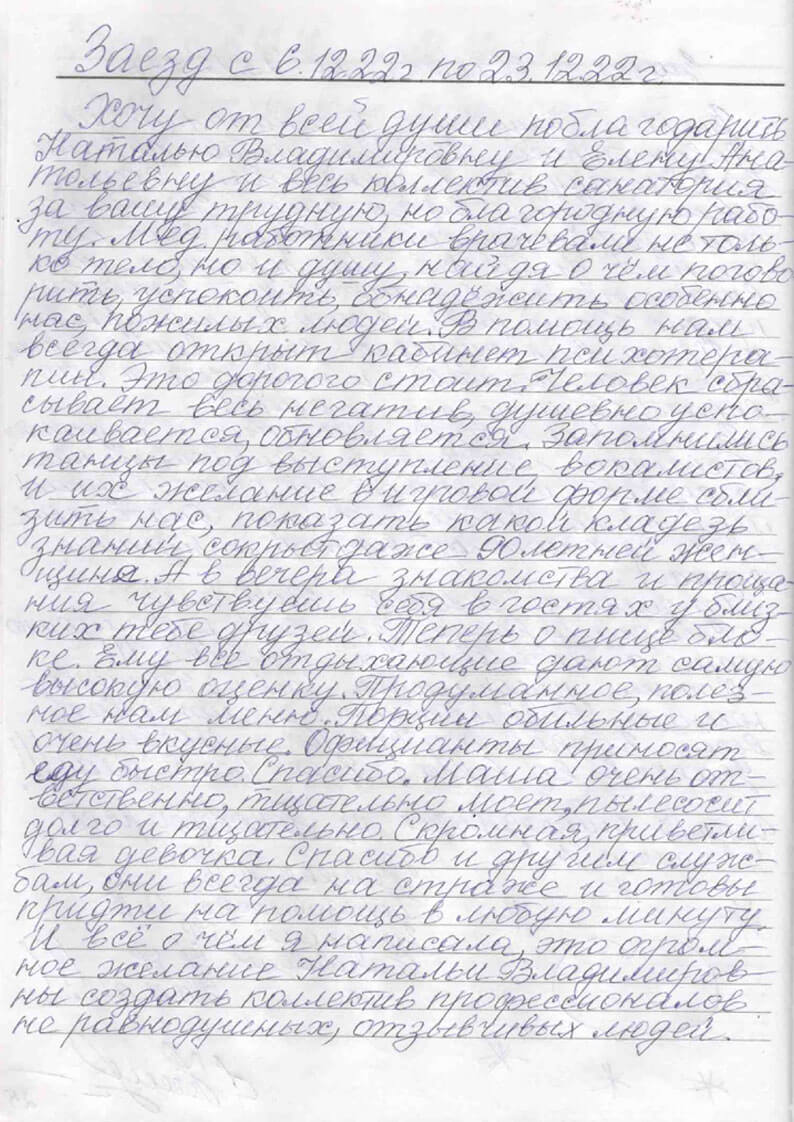 Заезд с 6.12.22г по 23.12.22г.
Хочу от всей души поблагодарить
Наталью Владимировну и Елену Ана-
тольевну и весь коллектив санатория
за вашу трудную, но благородную рабо-
ту. Мед. работники врачевали не толь-
ко тело, но и душу, найдя о чём погово
рить, успокоить, обнадёжить особенно
нас, пожилых людей. В помощь нам
всегда открыт кабинет психотера-
пии. Это дорогого стоит. Человек сбра-
сывает весь негатив, душевно успо-
каивается, обновляется. Запомнились
танцы под выступление вокалистов,
и их желание в игровой форме сбли-
зить нас, показать какой кладезь
знаний сокрыт даже 90летней жен-
щине. А в вечера знакомства и проща-
ния чувствуешь себя в гостях у близ-
ких тебе друзей. Теперь о пище бло-
ке. Ему все отдыхающие дают самую
высокую оценку. Продуманное, полез-
ное нам меню. Порции обильные и
очень вкусные. Официанты приносят
еду быстро. Спасибо. Маша очень от-
ветственно, тщательно моет, пылесосит
долго и тщательно. Скромная, приветли-
вая девочка. Спасибо и другим служ-
бам, они всегда на страже и готовы
придти на помощь в любую минуту.
И всё о чём я написала, это огром-
ное желание Натальи Владимиров-
ны создать коллектив профессионалов
не равнодушных, отзывчивых людей.